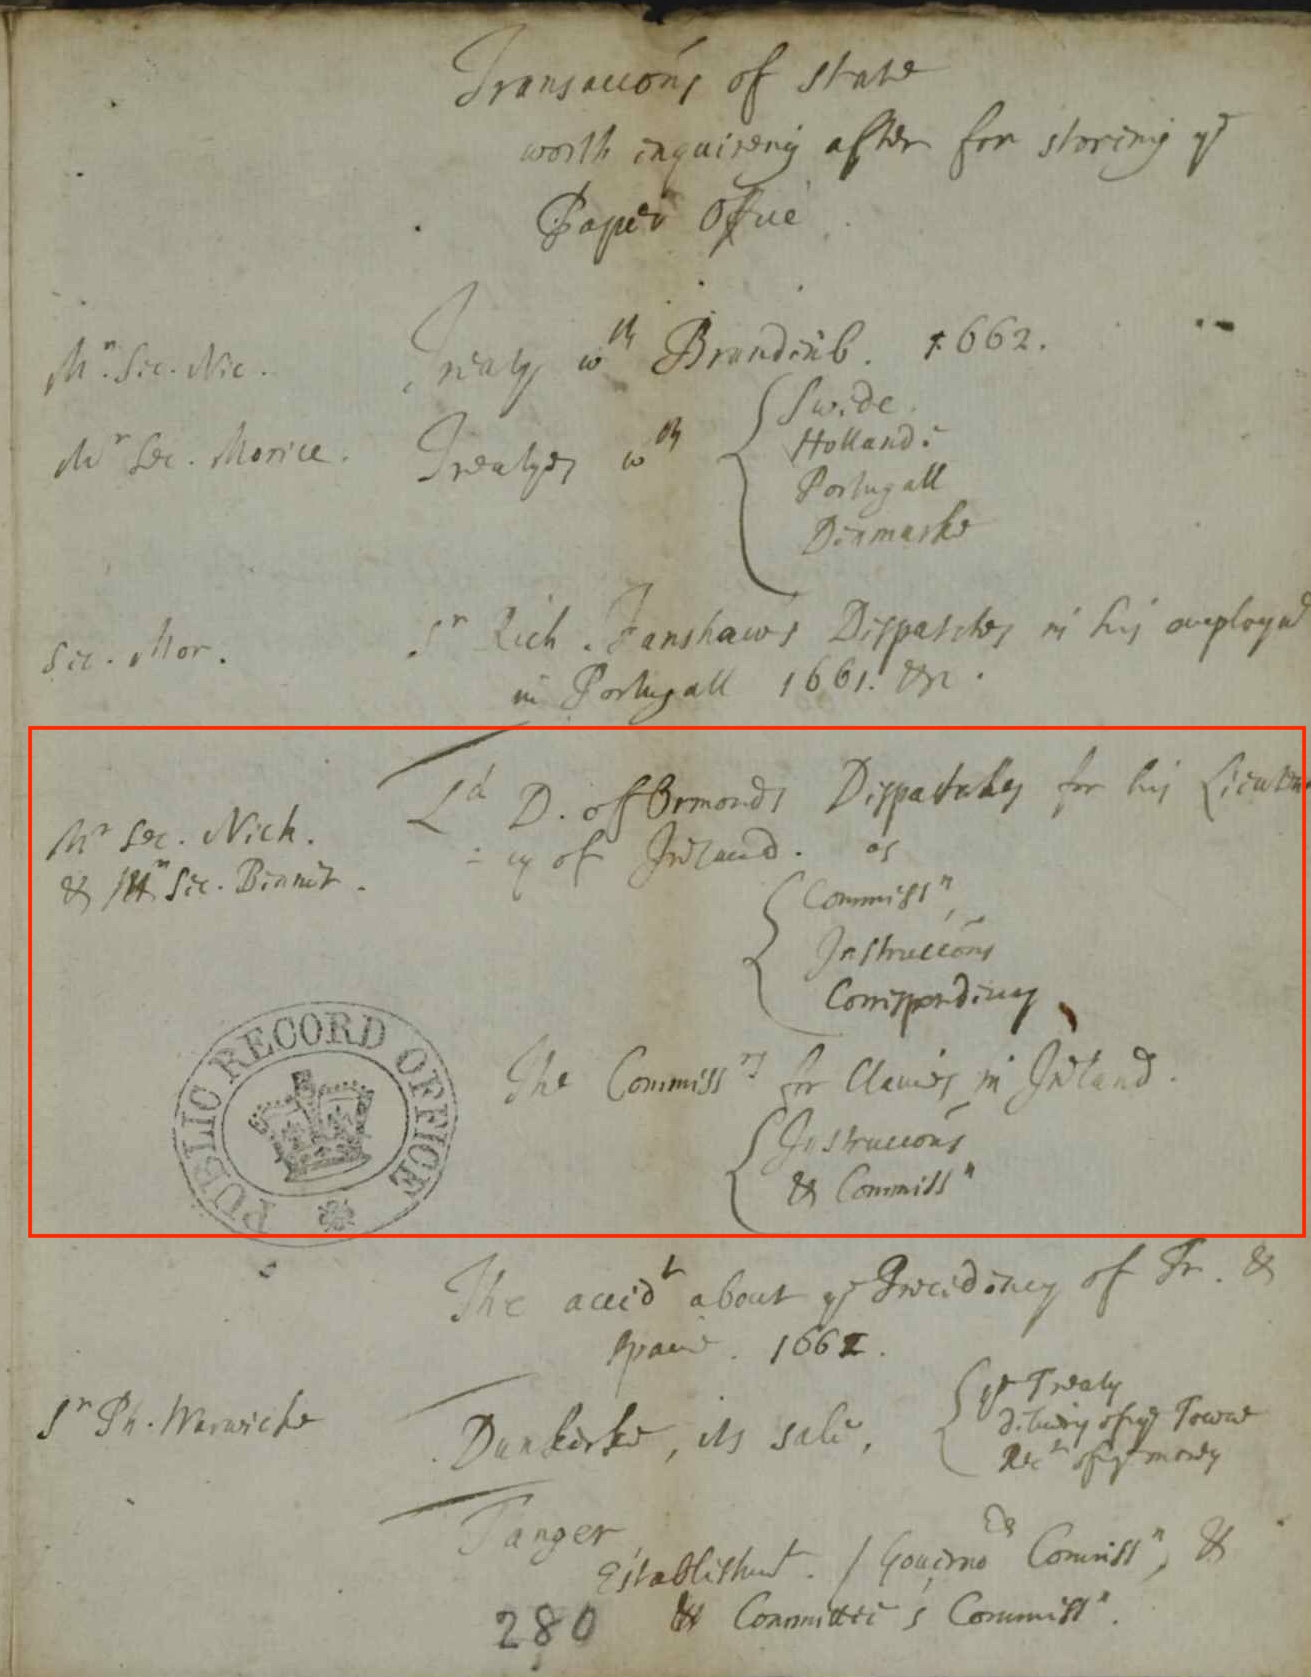 Transaccons of state
worth inquireing after for storing ye
Paper Office
Mr. Sec. Nic. Treaty wth Brandenb. 1662.
Mr Sec. Morice. Treatyes wth
Swede
Holland.
Portugall
Denmarke
Sec. Mor. Sr Rich. Fanshaws Dispatches in his employmt
in Portugall 1661. &c.
Ld D. of Ormonds Dispatches for his Lieuten
Mr Sec. Nich.
& Mr Sec. Bennet.
-cy of Ireland. as
Commissn,
Instruccons
Correspondency
The Commissrs for Claims in Ireland.
Instruccons
& Commissn
PUBLIC RECORD OFFICE
The accidt about ye Precedency of Fr. &
Spain. 1661.
Sr Ph. Warwicke Dunkerke, its sale,
ye Treaty
delivery of ye Towne
Rect of ye money
Tanger
Establishmt. / Governors Commissn, &
280 & Committee's Commissn.